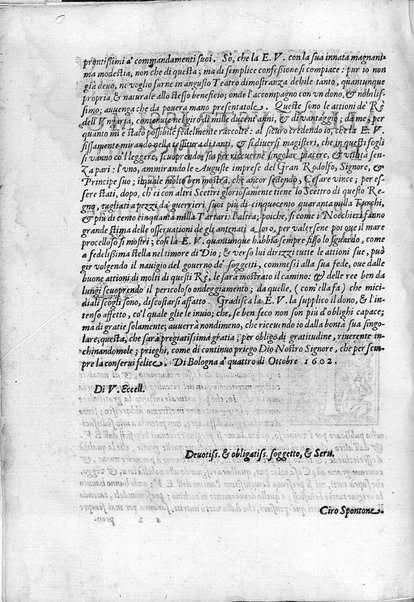 prontissimi a' commandamenti suoi. Sò, che la E.V. con la sua innata magnani
ma modestia, non che di questa; ma di semplice confessione si compiace: pur io non
già deuo, ne voglio farne in angusto Teatro dimostranza debile tanto, quantunque
propria & naturale allo stesso beneficio; onde l'accompagno con vn dono, & nobilis-
simo; auuenga che da pouera mano presentatole. Queste sono le attioni de' Rè
dell'Vngaria, contenute nel giro di mille ducent'anni, & di vantaggio; da me, per
quanto mi è stato possibile fedelmente raccolte: al sicuro credendo io, che la E.V.
fissamente mirando nella testura di tanti, & sì diuersi magisteri, che in questi fogli
si vanno co'l leggere, scuoprendo, sia per riceuerne singolar piacere, & vtilità senza
pari: l'vno, ammirando le Auguste imprese del Gran Rodolfo, Signore, &
Principe suo; il quale molto ben mostra, che ancor sedendo, Cesare vince; per es-
sere stati, dopo, ch'ei con altri Scettri gloriosamente tiene lo Scettro di questo Re-
gno, tagliati a pezzi da guerrieri suoi più di cinquecento quaranta milla Turchi,
& più di cento cinquanta milla Tartari: l'altra; poiche, sì come i Nocchieri fanno
grande stima delle osseruationi de gli antenati a loro, per valersene poi que il mare
procelloso si mostri; così la E.V. quantunque habbia sempre fisso lo sguardo, come
a fedelissima stella nel timore di Dio; & verso lui dirizzi tutte le attioni sue, può
gir volgendo il nauigio del gouerno de' soggetti, commessi alla sua fede, oue dalle
buone attioni di molti di questi Rè, le sarà mostrato il camino: & delle ree ben da
lungi scuoprendo il pericoloso ondeggiamento; da quelle, (com'ella fa) che mici-
diali di scogli sono, discostarsi affatto. Gradisca la E.V. la supplico il dono, & l'in-
tenso affetto, co'l quale glie le inuio; che, se ben feco non son più d'oblighi capace;
ma di gratie solamente; auuerrà nondimeno, che riceuendo io dalla bontà sua singo-
lare, questa, che sarà pregiatissima gratia; per obligo di gratitudine, riuerente in-
chinandomele; prieghi, come di continuo priego Dio Nostro Signore, che per sem-
pre la conserui felice. Di Bologna a' quattro di Ottobre 1602.
Di V. Eccell.
Deuotiss. & obligatiss. soggetto, & Seru.
Ciro Spontone.